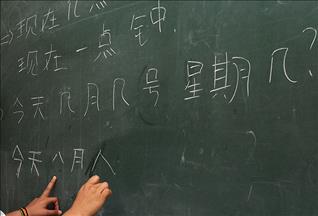 ⇒现在几点
现在一点钟.
今天几月几号 星期几?
今天八月八